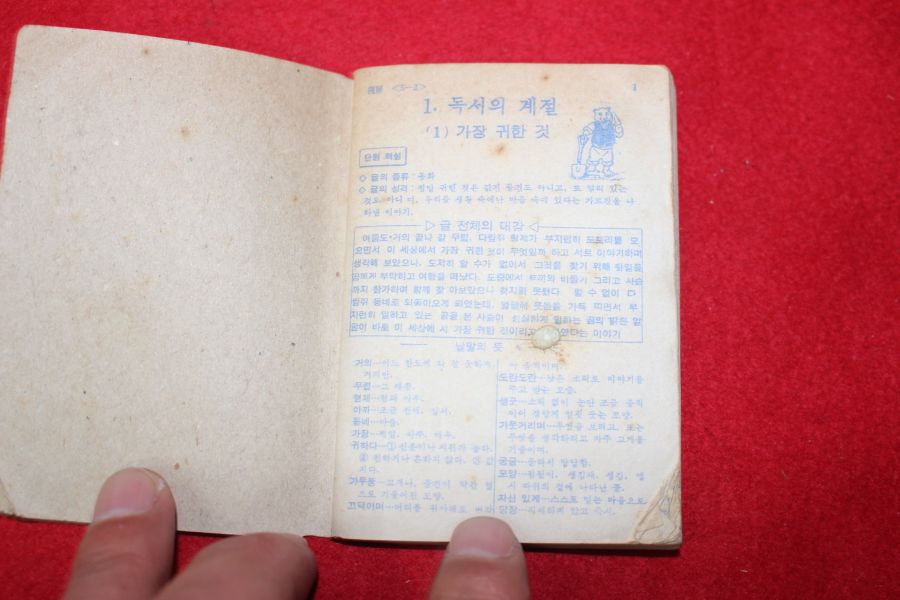 <5-2>
1
1. 독서의 계절
(1) 가장 귀한 것
단원 핵심
◇ 글의 종류 : 동화
◇ 글의 성격 : 정말 귀한 것은 값진 물건도 아니고, 또 멀리 있는
것도 아니
▷ 글 전체의 대강 ◁
여름도 거의 끝나 갈 무렵, 다람쥐 형제가 부지런히 도토리를 모
으면서 이 세상에서 가장 귀한 것이 무엇일까 하고 서로 이야기하며
생각해 보았으나, 도저히 알 수가 없어서 그것을 찾기 위해
부탁하고 여행을 떠났다. 도중에서 토끼와 비둘기 그리고 사슴
까지 참가하여 함께 찾아보았으나 찾지를 못했다. 할 수 없이 다
람쥐 동네로 되돌아오게 되었는데, 가득 띠면서 부
지런히 일하고 있는 곰을 본 사슴이 성실하게 일하는 곰의 밝은 얼
굴이 바로 이 세상에서 가장 귀한 것이라고 이야기
낱말의 뜻
거의…어느 한도에 다
무렵…그 때쯤.
아까…조금 전에,
동네…마을.
가장…제일, 아주, 매우.
귀하다…① 신분이나 지위가 높다.
② 흔하지 않다.
갸우뚱…고개나, 물건이 약간 옆
으로 기울어진 모양.
끄덕이며…머리를 위아래로
도란도란…낮은 소리로 이야기를
주고 받는 모양.
생긋…소리 없이 눈만 조금 움직
이어 정답게 얼핏 웃는 모양.
갸웃거리며…무엇을 보려고, 또는
무엇을 생각하려고 자주 고개를
기울이며.
궁금…답답함.
모양…됨됨이, 생김새,
자신 있게…스스로 믿는 마음으로.
당장…지체하지 않고 즉시.